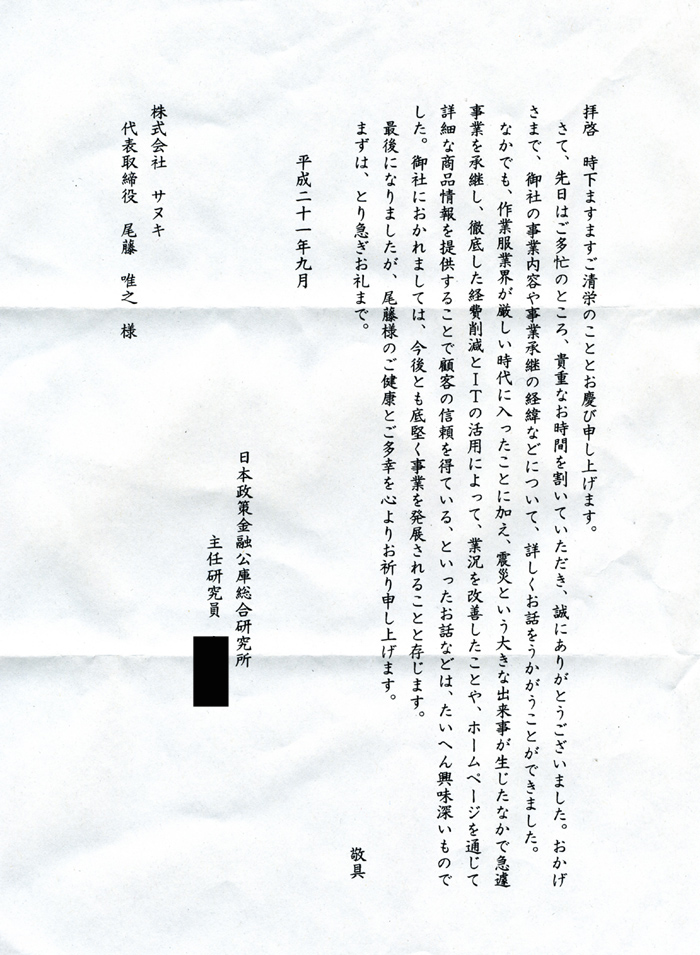 拝啓　時下ますますご清栄のこととお慶び申し上げます。
さて、先日はご多忙のところ、貴重なお時間を割いていただき、誠にありがとうございました。おかげ
さまで、御社の事業内容や事業承継の経緯などについて、詳しくお話をうかがうことができました。
なかでも、作業服業界が厳しい時代に入ったことに加え、震災という大きな出来事が生じたなかで急遽
事業を承継し、徹底した経費削減とＩＴの活用によって、業況を改善したことや、ホームページを通じて
詳細な商品情報を提供することで顧客の信頼を得ている、といったお話などは、たいへん興味深いもので
した。御社におかれましては、今後とも底堅く事業を発展されることと存じます。
最後になりましたが、尾藤様のご健康とご多幸を心よりお祈り申し上げます。
まずは、とり急ぎお礼まで。
敬具
平成二十一年九月
日本政策金融公庫総合研究所
主任研究員
株式会社　サヌキ
代表取締役　尾藤　唯之　様